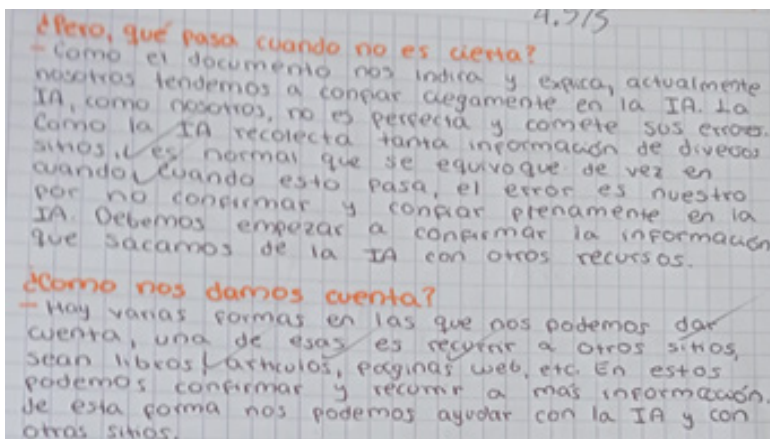 4.5/5
¿Pero, qué pasa cuando no es cierta?
- Como el documento nos indica y explica, actualmente
nosotros tendemos a confiar ciegamente en la IA. La
IA, como nosotros, no es perfecta y comete sus errores.
Como la IA recolecta tanta información de diversos
sitios, es normal que se equivoque de vez en
cuando, cuando esto pasa, el error es nuestro
por no confirmar y confiar plenamente en la
IA. Debemos empezar a confirmar la información
que sacamos de la IA con otros recursos.
¿Como nos damos cuenta?
- Hay varias formas en las que nos podemos dar
cuenta, una de esas es recurrir a otros sitios,
sean libros, articulos, paginas web, etc. En estos
podemos confirmar y recurrir a más información.
de esta forma nos podemos ayudar con la IA y con
otros sitios.